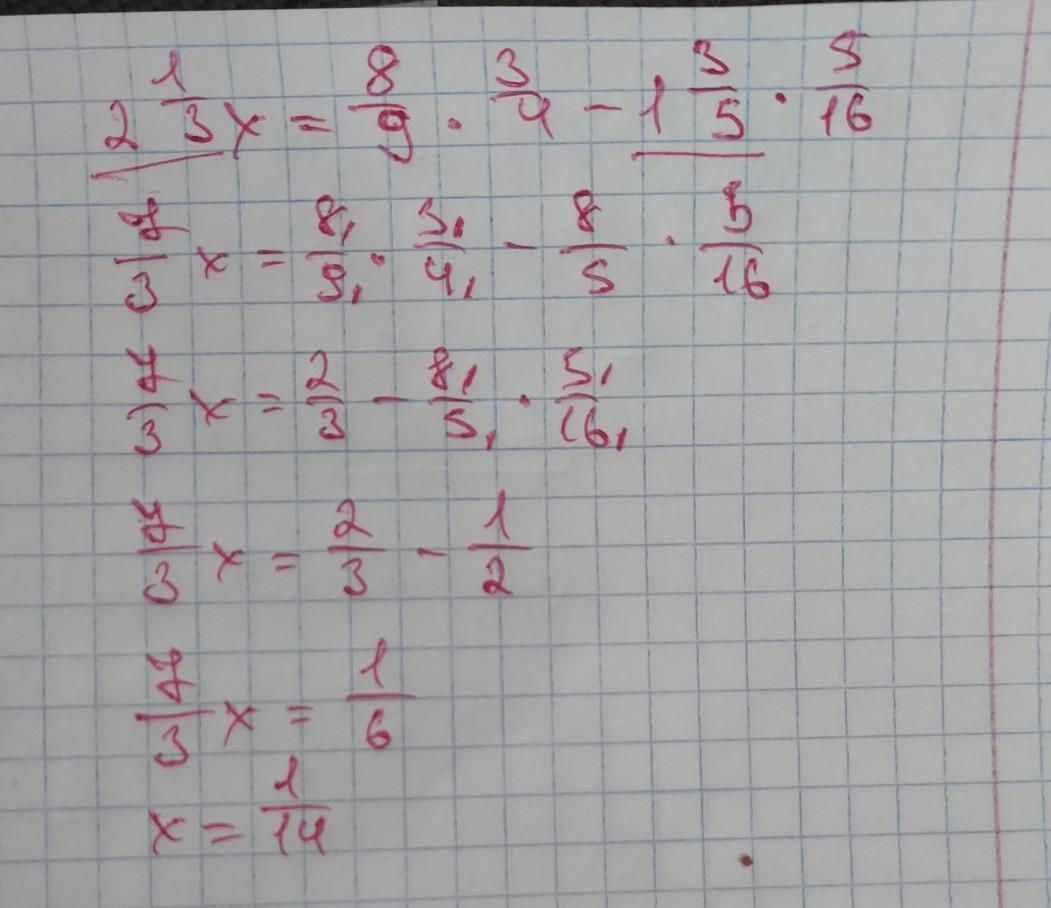 2 1/3 x = 8/9 · 3/4 - 1 3/5 · 5/16
7/3 x = 8/9 · 3/4 - 8/5 · 5/16
7/3 x = 2/3 - 8/5 · 5/16
7/3 x = 2/3 - 1/2
7/3 x = 1/6
x = 1/14